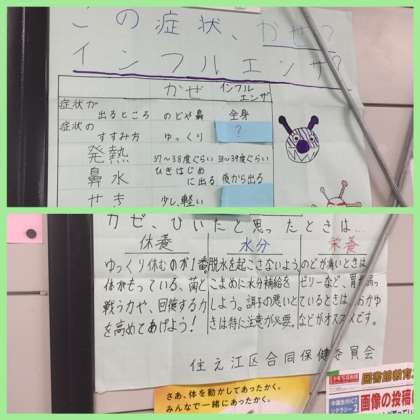 この症状、かぜ?
インフルエンザ?
かぜ インフルエンザ
症状が出るところ のどや鼻 全身
症状のすすみ方 ゆっくり ?
発熱 37〜38度ぐらい 38〜39度ぐらい
鼻水 ひきはじめに出る 後から出る
せき 少し、軽い
カゼ、ひいたと思ったときは…
休養 水分 栄養
ゆっくり休むのが1番
体がもっている、菌と
戦う力や、回復する力
を高めてあげよう!
脱水を起こさないよう、
こまめに水分補給を
しよう。調子の悪いと
きは特に注意が必要。
のどが痛いときは
ゼリーなど、胃が弱っ
ているときは、おかゆ
などがオススメです。
住之江区合同保健委員会
さあ、体を動かしてあったかく。
みんなで一緒にあったかく。
図書館教育
画像の投稿